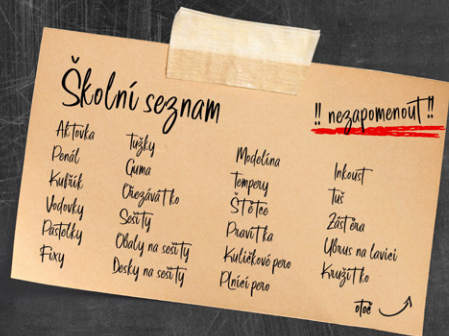 Školní seznam
!! nezapomenout !!
Aktovka
Penál
Kufřík
Vodovky
Pastelky
Fixy
Tužky
Guma
Ořezávátko
Sešity
Obaly na sešity
Desky na sešity
Modelína
Tempery
Štětce
Pravítka
Kuličkové pero
Plnící pero
Inkoust
Tuš
Zástěra
Ubrus na lavici
Kružítko
otoč